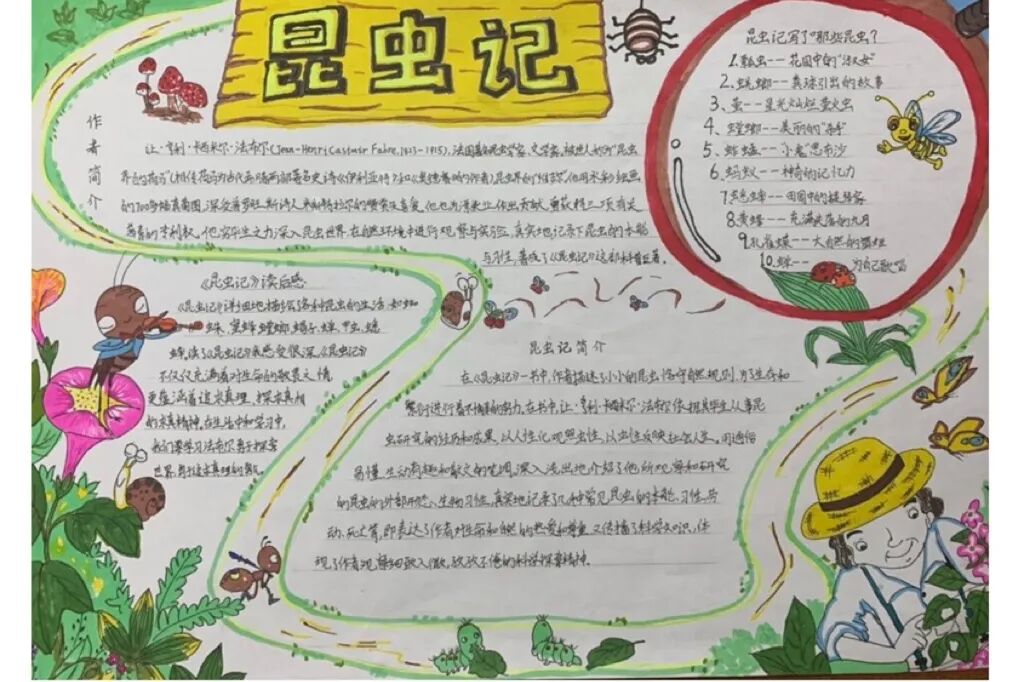 昆虫记
作者简介
让·亨利·卡西米尔·法布尔(Jean-Henri Casimir Fabre,1823-1915),法国著名昆虫学家、文学家。被世人称为"昆虫
界的荷马"
昆虫界的"维吉尔"
与习性,著成了《昆虫记》这部科普巨著。
《昆虫记》读后感
《昆虫记》详细地描绘各种昆虫的生活:如蜘
蛛、蜜蜂、螳螂、蝎子、蝉、甲虫、蟋
蟀。读了《昆虫记》我感受很深,《昆虫记》
不仅仅充满着对生命的敬畏之情
更蕴涵着追求真理、探求真相
的求真精神。在生活中和学习中,
我们要学习法布尔勇于探索
世界、勇于追求真理的
昆虫记简介
在《昆虫记》一书中,作者描述了小小的昆虫恪守自然规则,为了生存和
繁衍进行着不懈的努力。在书中,让·亨利·卡西米尔·法布尔依据其毕生从事昆
虫研究的经历和成果,以人性化观照虫性,以虫性反映社会人生。用通俗
易懂、生动有趣和散文的笔调,深入浅出地介绍了他所观察和研究
的昆虫的外部形态、生物习性,真实地记录了几种常见昆虫的本能、习性、劳
动、死亡等,即表达了作者对生命和自然的热爱和尊重,又传播了科学知识,体
现了作者观察细致入微、孜孜不倦的科学探索精神。
昆虫记写了哪些昆虫?
1.瓢虫--花园中的"淑女"
2、蜣螂--粪球引出的故事
3、萤--星光灿烂萤火虫
4、螳螂--美丽的"杀手"
5、蟋蟀--小鬼"思布沙
6、蚂蚁--神奇的记忆力
8.黄蜂--充满失落的九月
9.孔雀蝶--大自然的舞姬
10.蝉-- 为自己歌唱